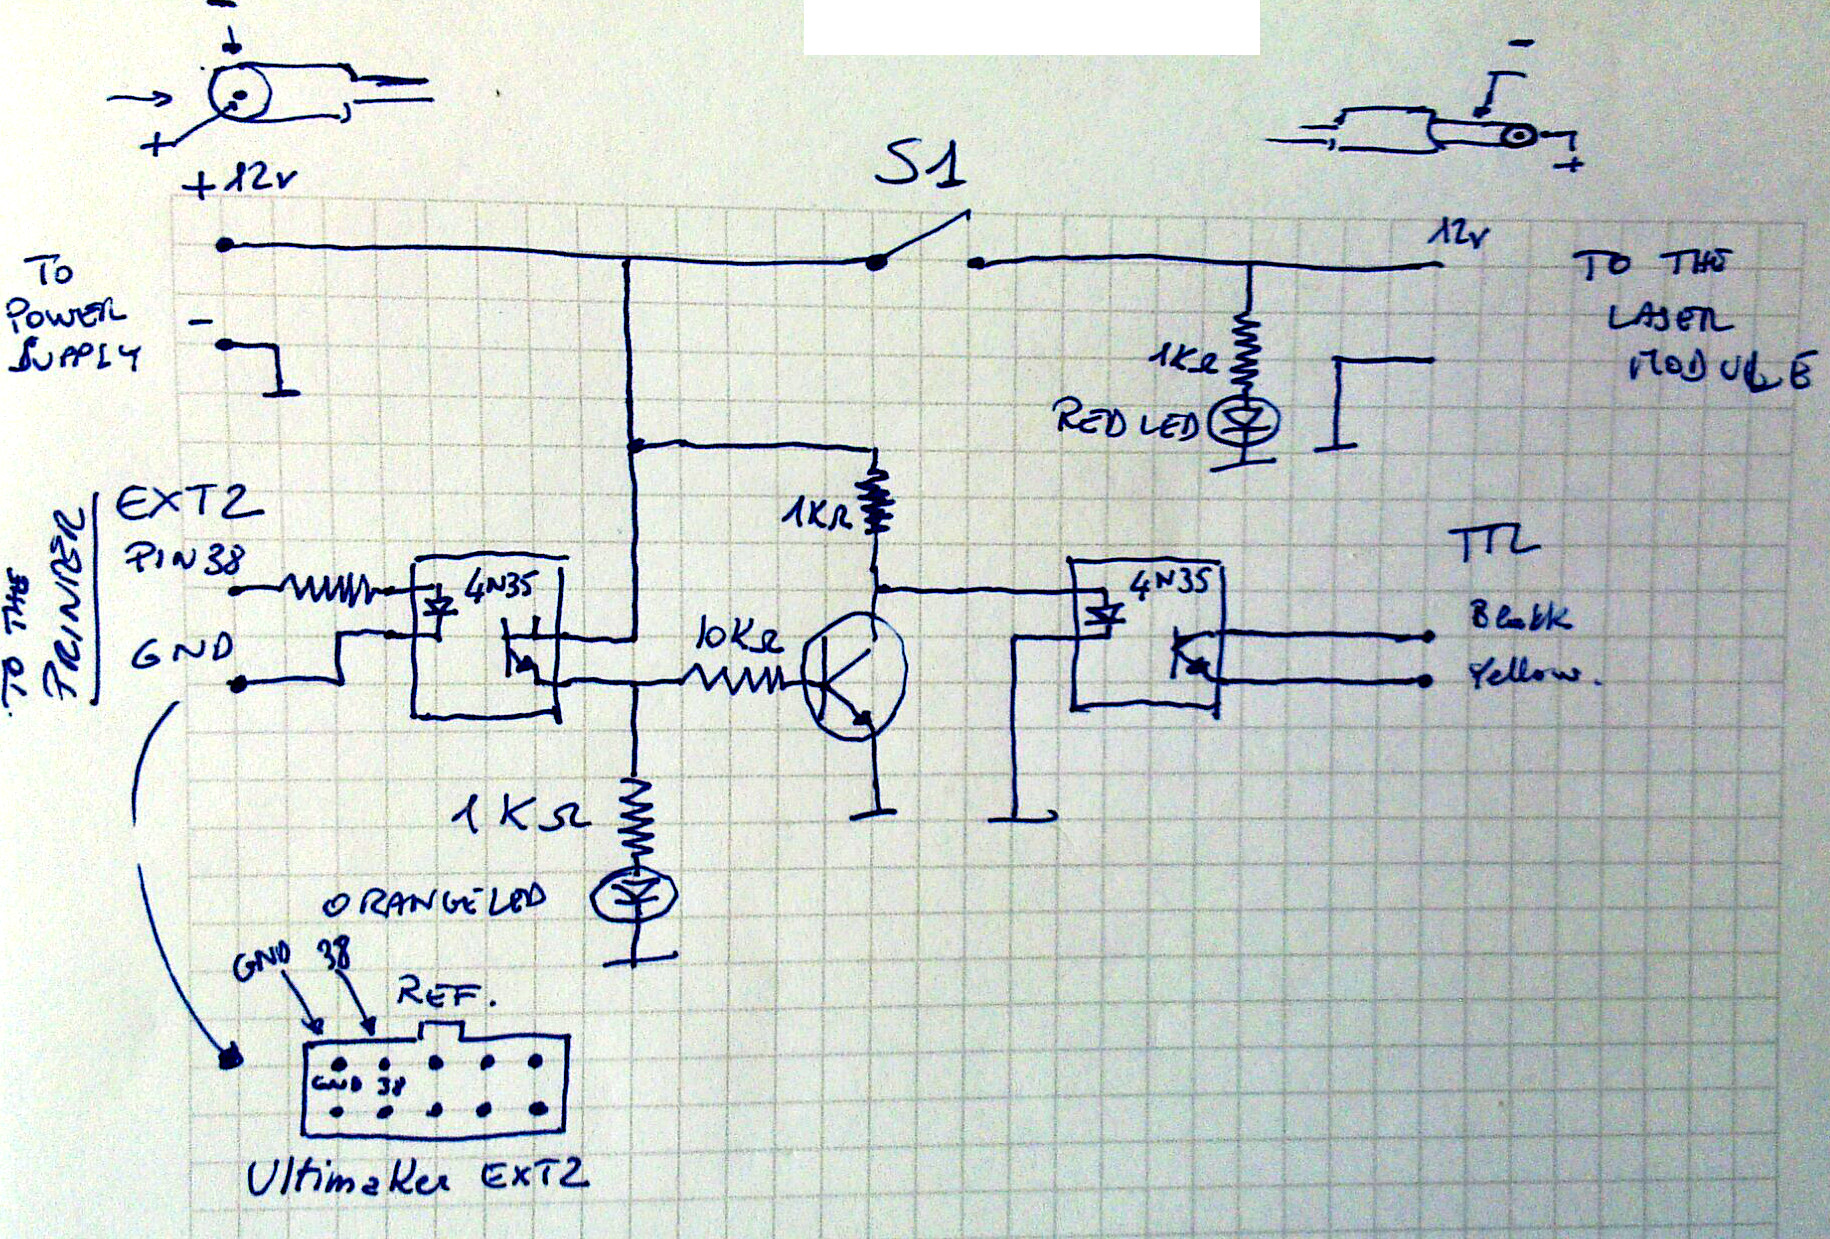 -
-
+
+
S1
+12v
12v
TO
POWER
SUPPLY
-
TO THE
LASER
MODULE
1KΩ
RED LED
TO THE
PRINTER
EXT2
PIN38
GND
4N35
1KΩ
10KΩ
4N35
TTL
Black
Yellow.
1KΩ
ORANGE LED
GND 38
REF.
GND 38
Ultimaker EXT2